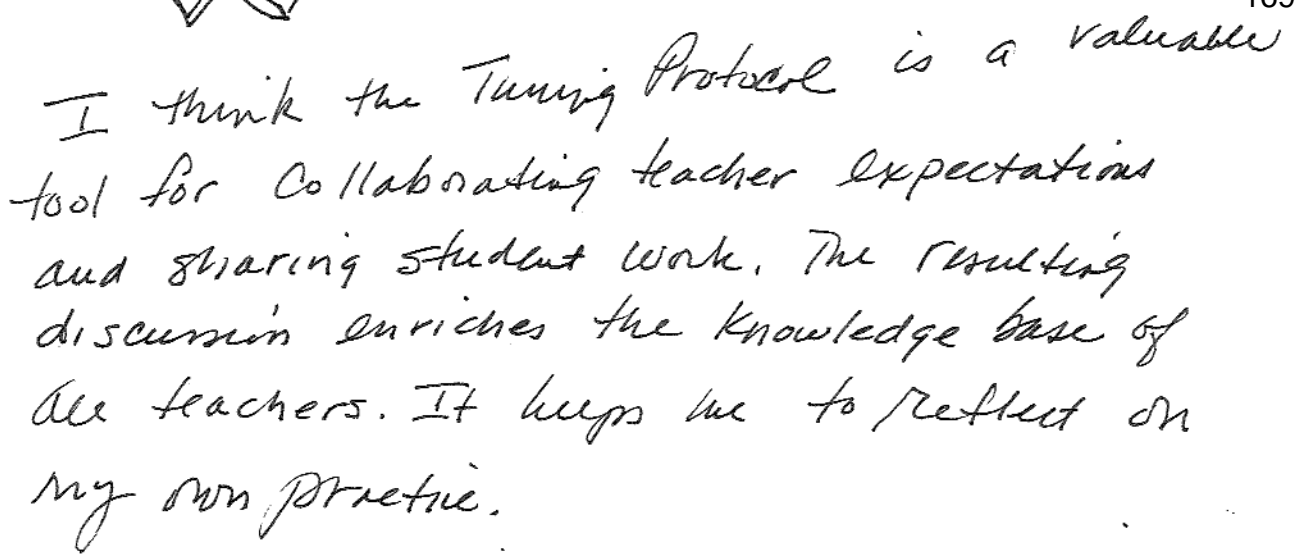 169
I think the Tuning Protocol is a valuable
tool for Collaborating teacher expectations
and sharing student work. The resulting
discussion enriches the knowledge base of
all teachers. It helps me to reflect on
my own practice.